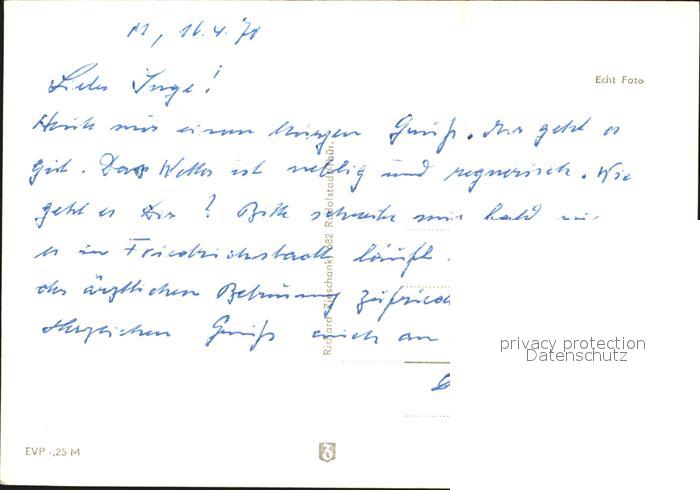 M, 16.4.71
Echt Foto
Liebe Inge!
Heute nur einen kurzen Gruß. Mir geht es
gut. Das Wetter ist neblig und regnerisch. Wie
geht es Dir? Bitte schreibe mir bald wie
es in Friedrichstadt läuft
der ärztlichen Betreuung zufried
Herzlichen Gruß auch an
Richard Zieschank, 682 Rudolstadt/Thür.
privacy protection
Datenschutz
EVP -,25 M